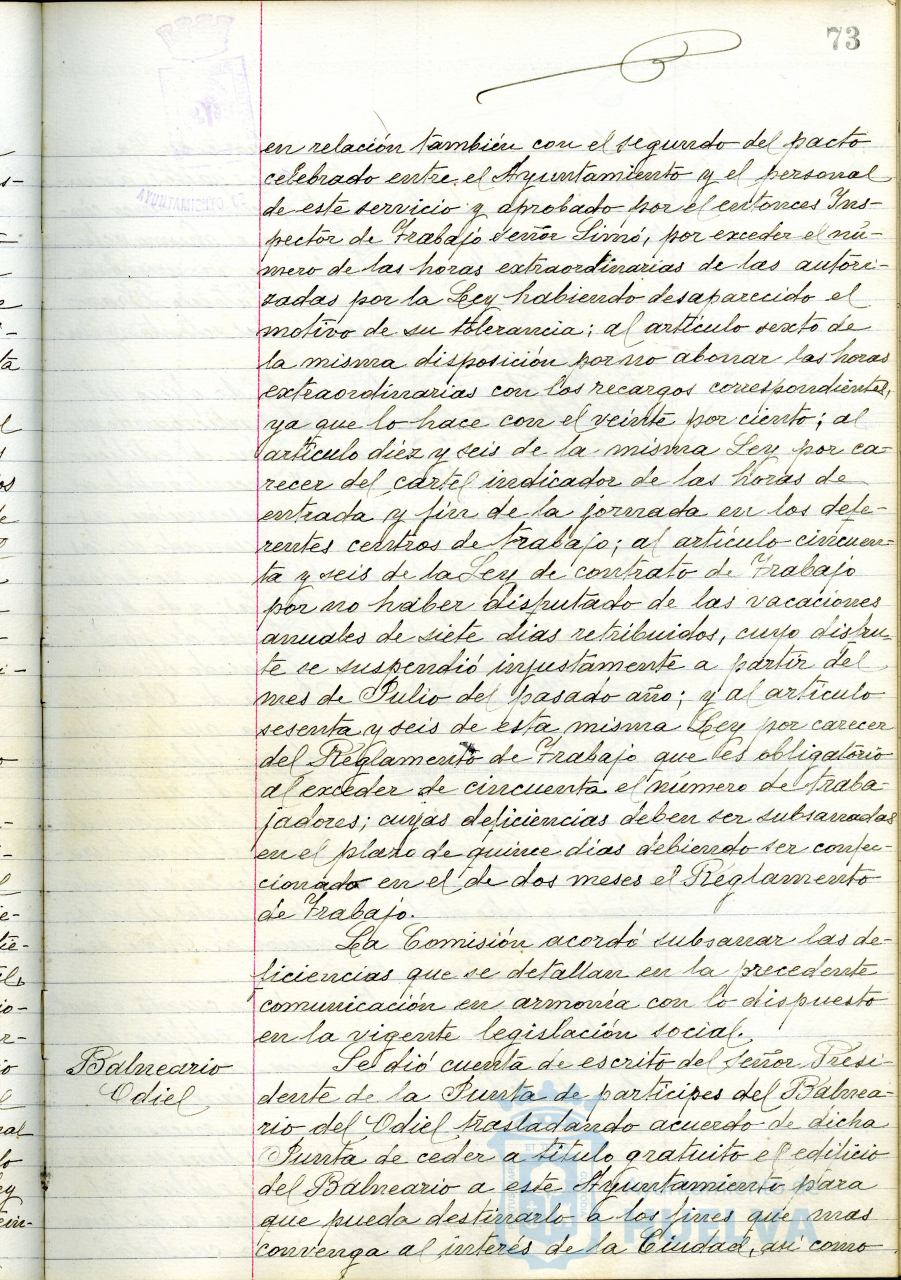 73
en relación también con el segundo del pacto
celebrado entre el Ayuntamiento y el personal
de este servicio y aprobado por el entonces Ins-
pector de Trabajo Señor Simó, por exceder el nú-
mero de las horas extraordinarias de las autori-
zadas por la Ley habiendo desaparecido el
motivo de su tolerancia; al artículo sexto de
la misma disposición por no abonar las horas
extraordinarias con los recargos correspondientes,
ya que lo hace con el veinte por ciento; al
artículo diez y seis de la misma Ley por ca-
recer del cartel indicador de las horas de
entrada y fin de la jornada en los dife-
rentes centros de trabajo; al artículo cincuen-
ta y seis de la Ley de contrato de Trabajo
por no haber disputado de las vacaciones
anuales de siete dias retribuidos, cuyo disfru-
te se suspendió injustamente a partir del
mes de Julio del pasado año; y al artículo
sesenta y seis de esta misma Ley por carecer
del Reglamento de Trabajo que es obligatorio
al exceder de cincuenta el número de traba-
jadores; cuyas deficiencias deben ser subsanadas
en el plazo de quince dias debiendo ser confec-
cionado en el de dos meses el Reglamento
de Trabajo.
La Comisión acordó subsanar las de-
ficiencias que se detallan en la precedente
comunicación en armonía con lo dispuesto
en la vigente legislación social.
Balneario
Odiel
Se dió cuenta de escrito del Señor Presi-
dente de la Junta de partícipes del Balnea-
rio del Odiel trasladando acuerdo de dicha
Junta de ceder a título gratuito el edificio
del Balneario a este Ayuntamiento para
que pueda destinarlo a los fines que mas
convenga al interés de la Ciudad, así como
AYUNTAMIENTO DE
HUELVA